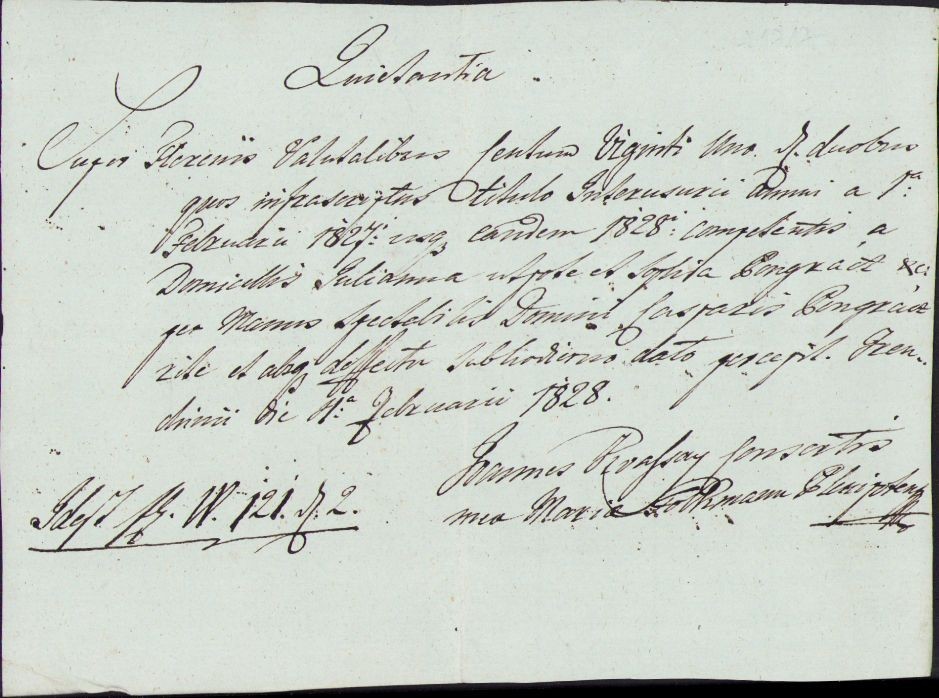 Quietantia
Super Florenis Valutalibus Centum Viginti Uno xr. duobus
quos infrascriptus titulo Interusurii Anni a 1ª
Februarii 1827i usq eandem 1828i competentis a
Domicellis Julianna utpote et Sophia Pongracz &c:
per Manus Spectabilis Domini Casparis Pongrácz
rite et absq deffectu sub hodierno dato percepit. Tren-
chinii die 4ª Februarii 1828.
Joannes Consortis
mea Maria Plenipoten
Id est fl. W. 121. xr. 2.